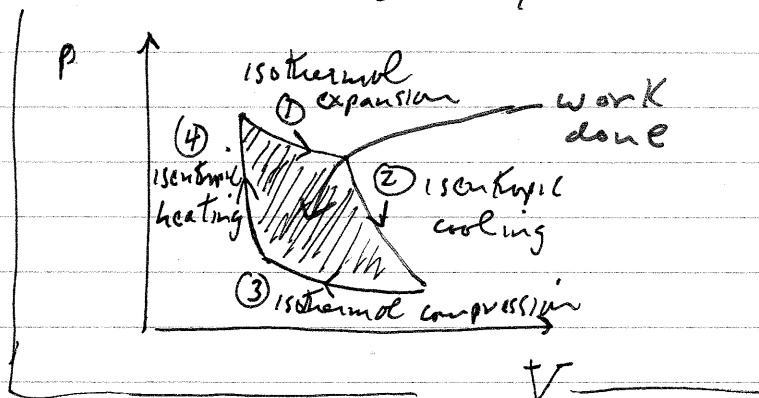 P
isothermal
① expansion
work
done
④
isentropic
heating
② isentropic
cooling
③ isothermal compression
V